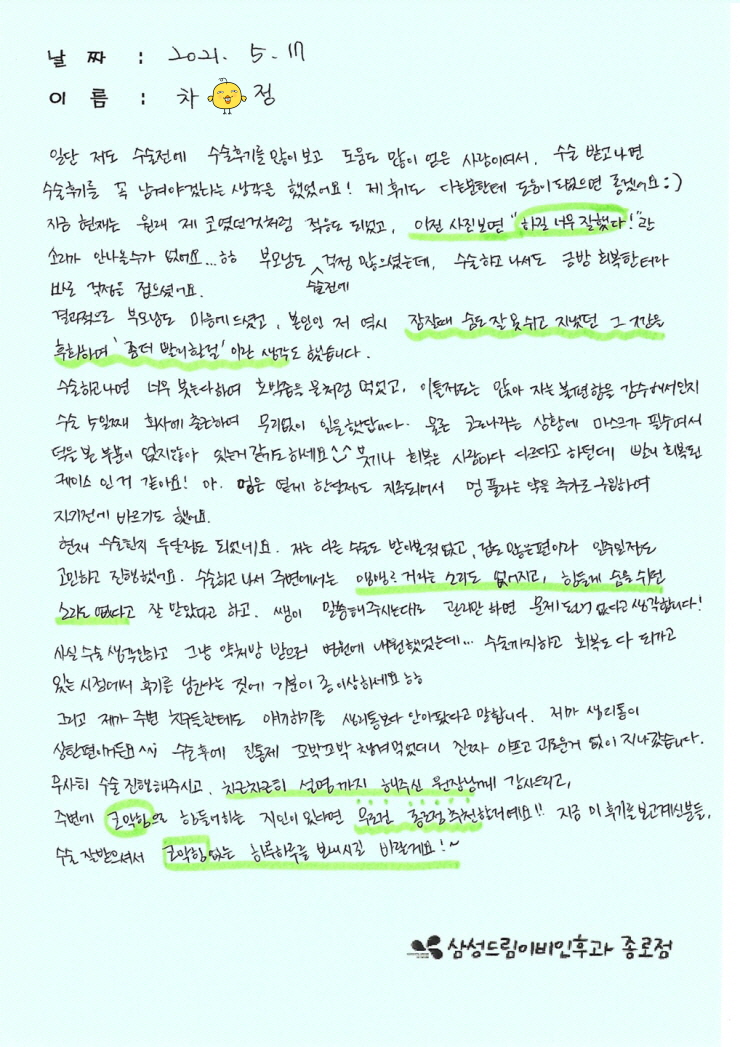 날 짜 : 2021. 5. 17
이 름 : 차 정
일단 저도 수술전에 수술후기를 많이 보고 도움도 많이 얻은 사람이여서, 수술 받고나면
수술후기를 꼭 남겨야겠다는 생각은 했었어요! 제 후기도 다른분한테 도움이 되었으면 좋겠어요 :)
지금 현재는 원래 제 코였던것처럼 적응도 되었고, 이전 사진보면 "하길 너무 잘했다!"란
소리가 안나올수가 없어요...ㅎㅎ 부모님도 수술전에 걱정 많으셨는데, 수술하고 나서도 금방 회복한터라
바로 걱정을 접으셨어요.
결과적으로 부모님도 마음에 드셨고, 본인인 저 역시 장장때 숨도 잘 못쉬고 지냈던 그 시간을
후회하며 '좀더 빨리할걸' 이란 생각도 했습니다.
수술하고나면 너무 붓는다하여 호박즙을 물처럼 먹었고, 이틀정도는 앉아 자는 불편함을 감수해서인지
수술 4일째 회사에 출근하여 무리없이 일을 했답니다. 물론 코로나라는 상황에 마스크가 필수여서
덕을 본 부분이 없지않아 있는거 같기도 하네요 ^^ 붓기나 회복은 사람마다 다르다고 하던데 빨리 회복된
케이스 인거 같아요! 아. 멍은 옅게 한달정도 지속되어서 멍 풀리는 약을 추가로 구입하여
자기전에 바르기도 했어요.
현재 수술한지 두달정도 되었네요. 저는 다른 수술도 받아본적 없고, 겁도 많은편이라 일주일정도
고민하고 진행했어요. 수술하고 나서 주변에서는 맹맹 거리는 소리도 없어지고, 힘들게 숨을 쉬던
소리도 없다고 잘 받았다고 하고. 쌤이 말씀해주시는대로 관리만 하면 문제되는거 없다고 생각합니다!
사실 수술 생각안하고 그냥 약처방 받으러 병원에 내원했었는데... 수술까지하고 회복도 다 되가고
있는 시점에서 후기를 남긴다는 것에 기분이 좀 이상하네요 ㅎㅎ
그리고 제가 주변 친구들한테도 얘기하기를 생리통보다 안아팠다고 말합니다. 제가 생리통이
심한편이거든요 ^^; 수술후에 진통제 꼬박꼬박 챙겨먹었더니 진짜 아프고 괴로운거 없이 지나갔습니다.
무사히 수술 진행해주시고, 차근차근히 설명까지 해주신 원장님께 감사드리고,
주변에 코막힘으로 힘들어하는 지인이 있다면 무조건 종로점 추천할거예요!! 지금 이 후기를 보고계신분들,
수술 잘받으셔서 코막힘 없는 하루하루를 보내시길 바랄게요!~
삼성드림이비인후과 종로점